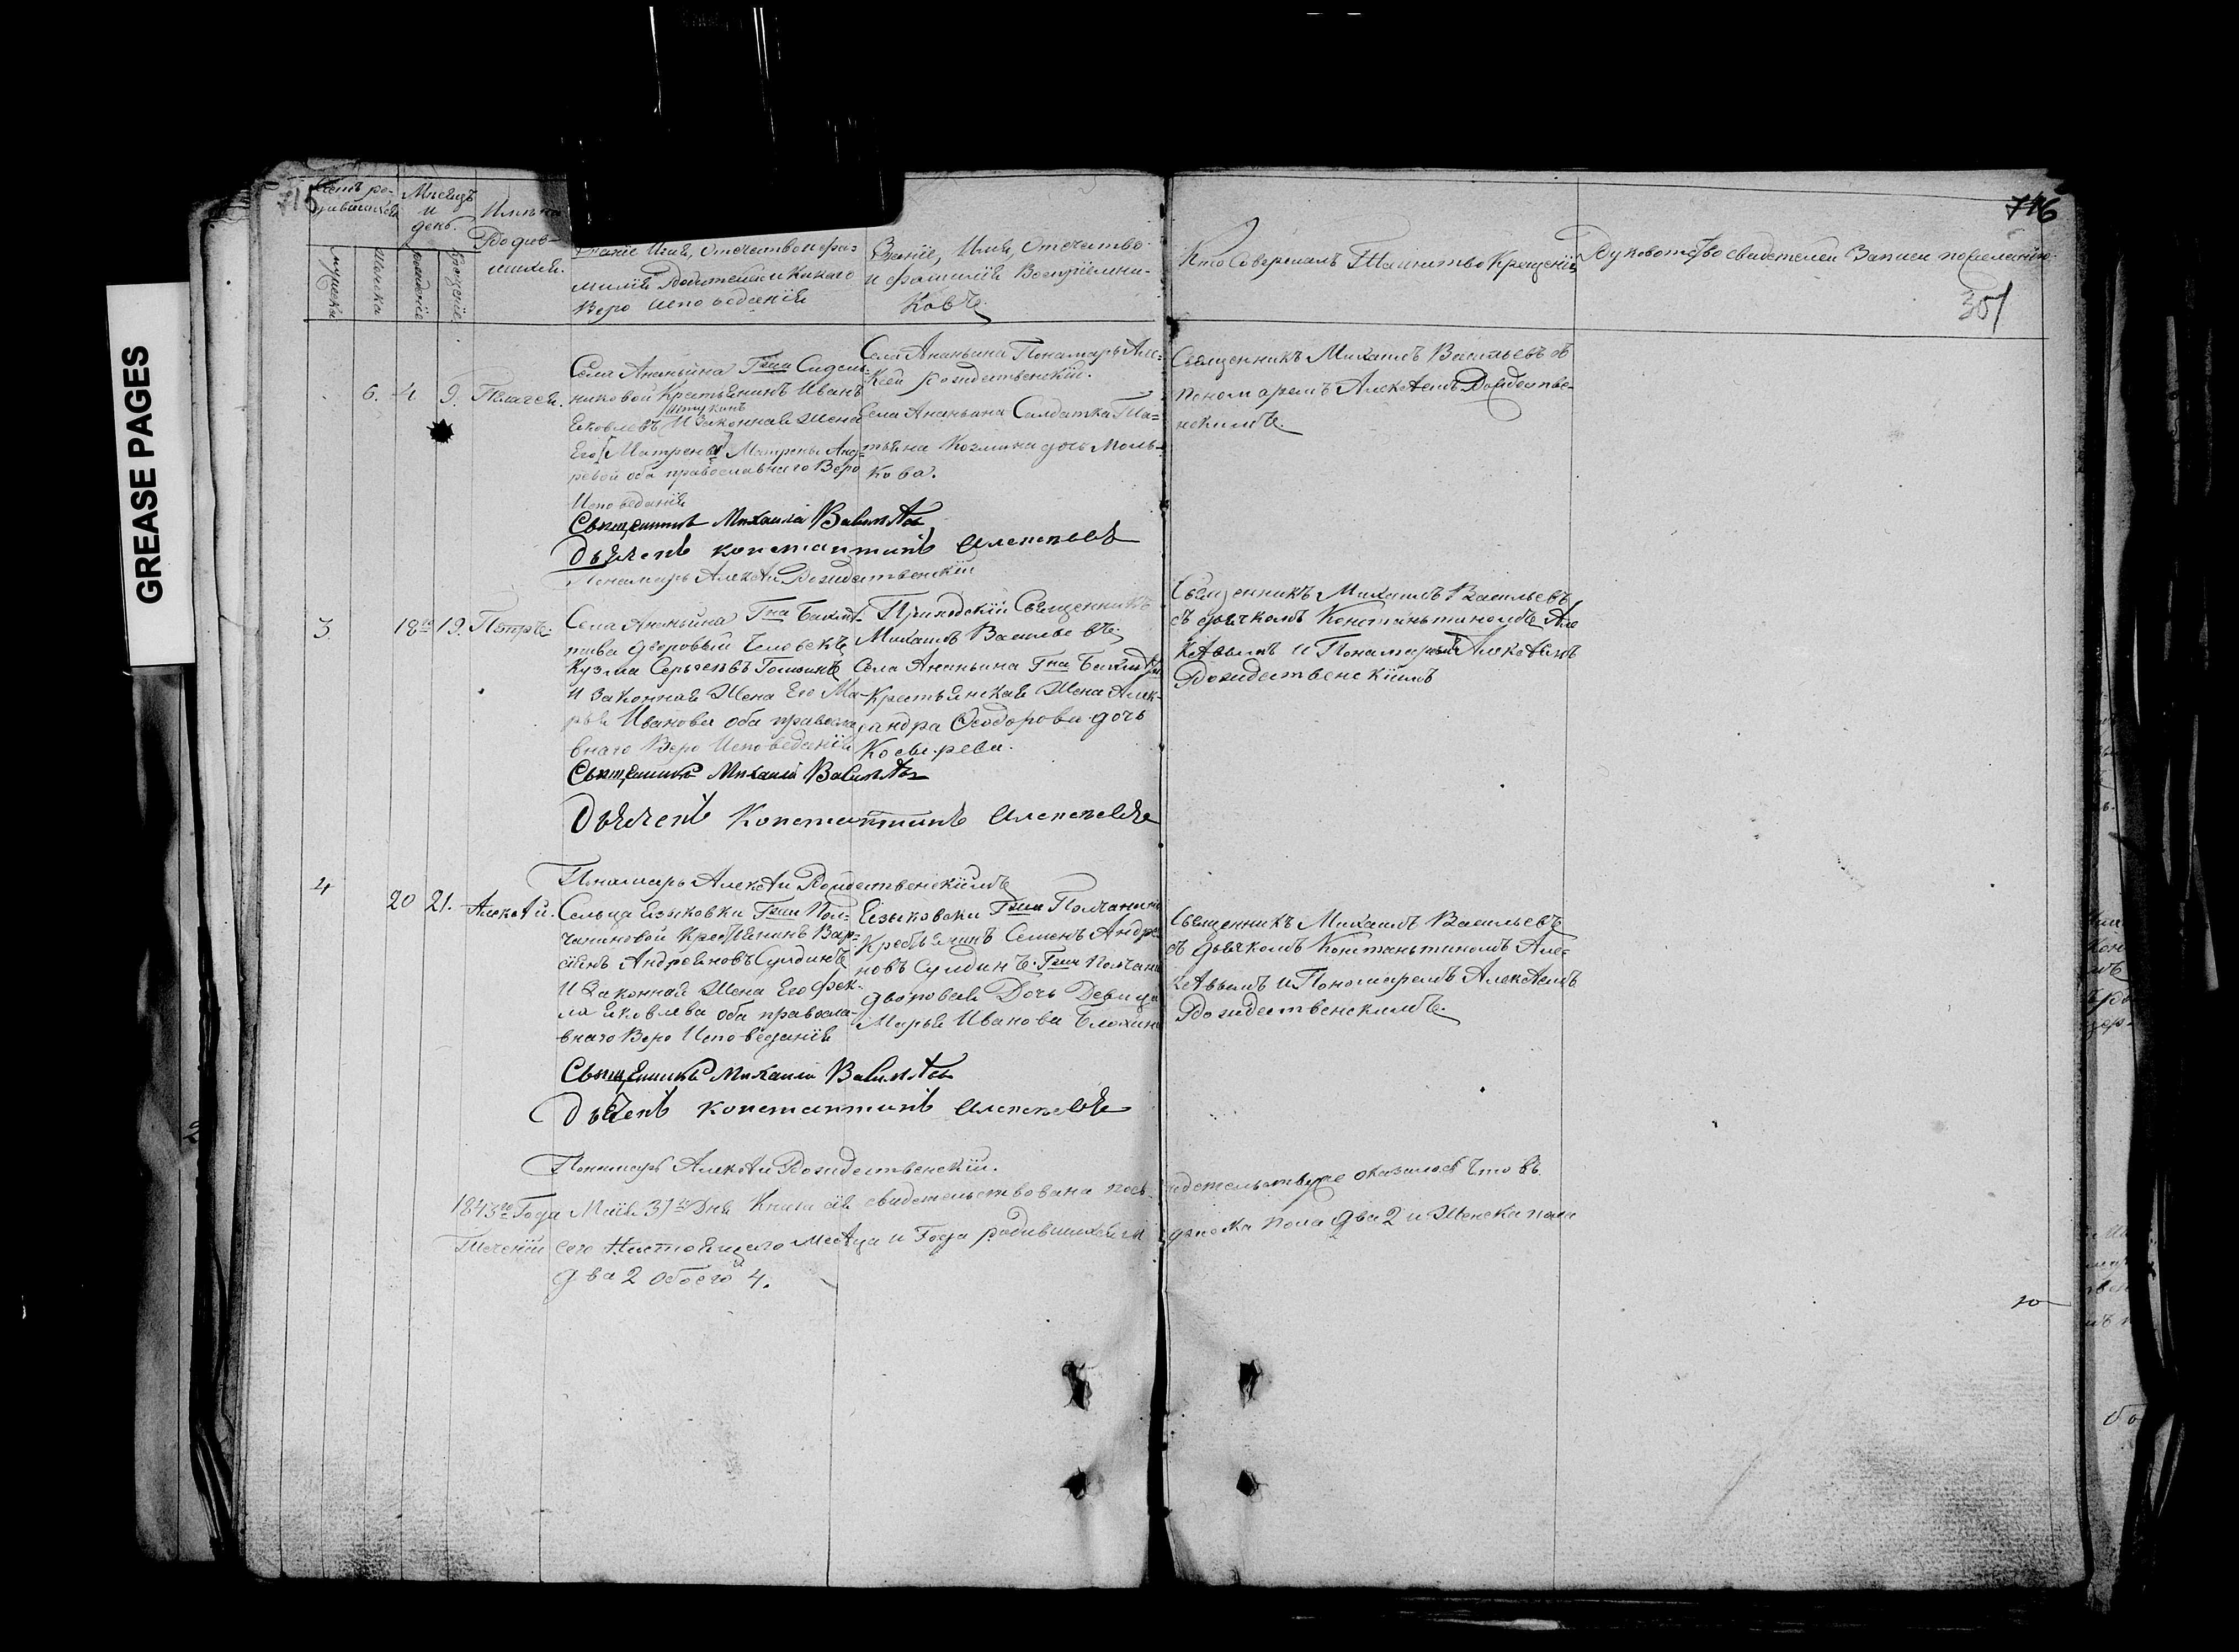 GREASE PAGES
715
716
Счетъ ро-
дившихся
Месецъ
и
день.
Имена
Родив-
шихся.
мужеска
женска
рожденіе
крещеніе.
Званіе Имя, Отечество и фа=
милія Родителей и какаго
Веро исповеданія
Званіе, Имя, Отечество
и фамилія Воспріемни-
ковъ.
Кто Совершалъ Таинство Крещенія
Рукоприкладство свидетелей Записи по желанію.
351
6. 4 9. Пелагея.
Села Ананьина Гжи
никовой Крестьянинъ Иванъ
Яковлевъ И Законная Жена
Его Матрены Матрены Анд=
ревой оба православнаго Веро
Исповеданія
Села Ананьина Пономарь Але=
ксей рождественскій.
Села Ананьина Салдатка Та=
тьяна Козмина дочь
кова.
Священникъ Михаилъ Васильевъ съ
пономаремъ Алексѣемъ Рождестве-
нскимъ.
Священникъ Михаилъ Васильевъ
Дьячекъ константинъ алексѣевъ
Пономарь Алексѣй Рождественскій
3 18го 19. Петръ.
Села Ананьина Гна
дворовый Человекъ
Кузма Сергеевъ
И законная Жена Его Ма-
рья Иванова оба правосла
внаго Веро Исповеданія
Приходскій Священникъ
Михаилъ Васильевъ.
Села Ананьина Гна
Крестьянская Жена Алек-
сандра Ѳеодорова дочь
Косырева.
Священникъ Михаилъ Васильевъ
съ дьячкомъ Константиномъ Але
ксѣвымъ и Пономаремъ Алексѣемъ
Рождественскіимъ
Священникъ Михаилъ Васильевъ
Дьячекъ Константинъ алексѣевъ
Пономарь Алексѣй Рождественскіимъ
4 20 21. Алексѣй.
Сельца Языковки Гжи Пол=
чаниновой Крестьянинъ Вар=
Андреяновъ Сулдинъ
И Законная Жена Его Фек-
ла Яковлева оба правосла-
внаго Веро Исповеданія
Языковски Гжи
Крестьянинъ Семенъ Андре
новъ Сулдинъ. Гжи Полчани
дворовая Дочь Девица
Марья Иванова Блохина
Священникъ Михаилъ Васильевъ
съ дьячкомъ Константиномъ Але-
ксѣвымъ и Пономаремъ Алексѣемъ
Рождественскимъ.
Священникъ Михаилъ Васильевъ
Дьячекъ константинъ алексѣевъ
Пономарь Алексѣй Рождественскіи.
1843го Года Маія 31го Дня Книга сія свидетельствована оказалось что въ
Теченіи сего Настоящаго Месѣца и Года родившихся пола два 2 и Женска пола
два 2 обоего 4.